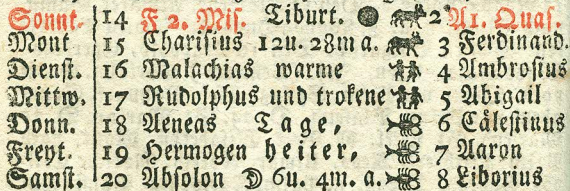 Sonnt. 14 F 2. Mis. Tiburt. 2 A1. Quas.
Mont 15 Charisius 12u. 28m a. 3 Ferdinand.
Dienst. 16 Malachias warme 4 Ambrosius
Mittw. 17 Rudolphus und trokene 5 Abigail
Donn. 18 Aeneas Tage, 6 Cälestinus
Freyt. 19 Hermogen heiter, 7 Aaron
Samst. 20 Absolon 6u. 4m. a. 8 Liborius